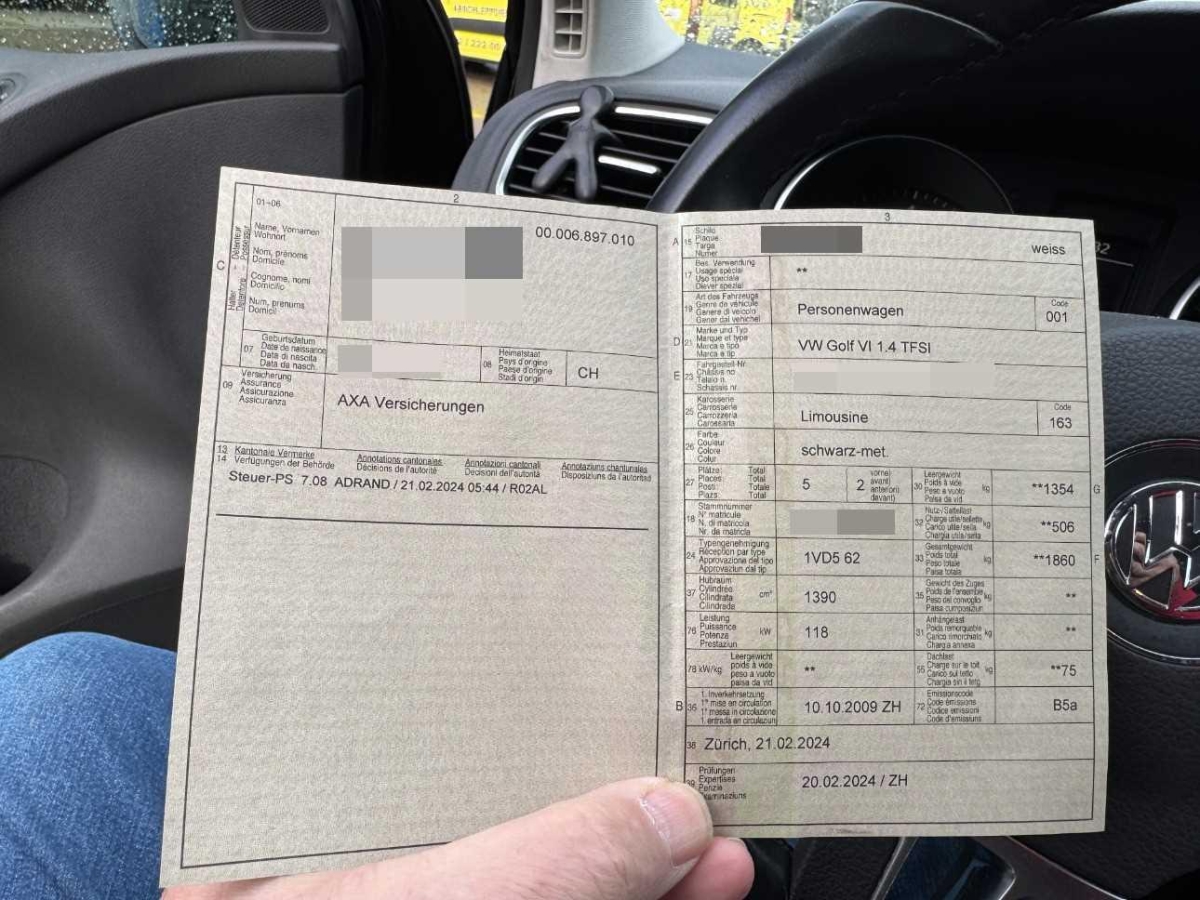 2
01-06
Name, Vornamen
Wohnort
Nom, prénoms
Domicile
Cognome, nomi
Domicilio
Num, prenums
Domicil
00.006.897.010
C
07
Geburtsdatum
Date de naissance
Data di nascita
Data da nasch.
08
Heimatstaat
Pays d'origine
Paese d'origine
Stadi d'origin
CH
09
Versicherung
Assurance
Assicurazione
Assicuranza
AXA Versicherungen
13
14
Kantonale Vermerke
Verfügungen der Behörde
Annotations cantonales
Décisions de l'autorité
Annotazioni cantonali
Decisioni dell'autorità
Annotaziuns chantunalas
Disposiziuns da l'autoritad
Steuer-PS 7.08 ADRAND / 21.02.2024 05:44 / R02AL
3
A
15
Schild
Plaque
Targa
Numer
weiss
17
Bes. Verwendung
Usage spécial
Uso speciale
Diever spezial
**
19
Art des Fahrzeugs
Genre de véhicule
Genere di veicolo
Gener dal vehichel
Personenwagen
Code
001
D
21
Marke und Typ
Marque et type
Marca e tipo
Marca e tip
VW Golf VI 1.4 TFSI
E
23
Fahrgestell-Nr.
Châssis no
Telaio n.
Schassis nr.
25
Karosserie
Carrosserie
Carrozzeria
Carossaria
Limousine
Code
163
26
Farbe
Couleur
Colore
Colur
schwarz-met.
27
Plätze Total
Places Total
Posti Totale
Plazs Total
5
2
vorne)
avant)
anteriori)
davant)
30
Leergewicht
Poids à vide
Peso a vuoto
Paisa da vid
kg
**1354
G
18
Stammnummer
N° matricule
N. di matricola
Nr. da matricla
32
Nutz-/Sattellast
Charge utile/sellette
Carico utile/sella
Chargia utila/sella
kg
**506
24
Typengenehmigung
Réception par type
Approvazione del tipo
Approvaziun dal tip
1VD5 62
33
Gesamtgewicht
Poids total
Peso totale
Paisa totala
kg
**1860
F
37
Hubraum
Cylindrée
Cilindrata
Cilindrada
cm³
1390
35
Gewicht des Zuges
Poids de l'ensemble
Peso del convoglio
Paisa cumposiziun
kg
**
76
Leistung
Puissance
Potenza
Prestaziun
kW
118
31
Anhängelast
Poids remorquable
Carico rimorchiato
Chargia annexa
kg
**
78 kW/kg
Leergewicht
poids à vide
peso a vuoto
paisa da vid
**
55
Dachlast
Charge sur le toit
Carico sul tetto
Chargia sin il tetg
kg
**75
B
36
1. Inverkehrsetzung
1re mise en circulation
1a messa in circolazione
1. entrada en circulaziun
10.10.2009 ZH
72
Emissionscode
Code émissions
Codice emissioni
Code d'emissiuns
B5a
38
Zürich, 21.02.2024
39
Prüfungen
Expertises
Perizie
Examinaziuns
20.02.2024 / ZH